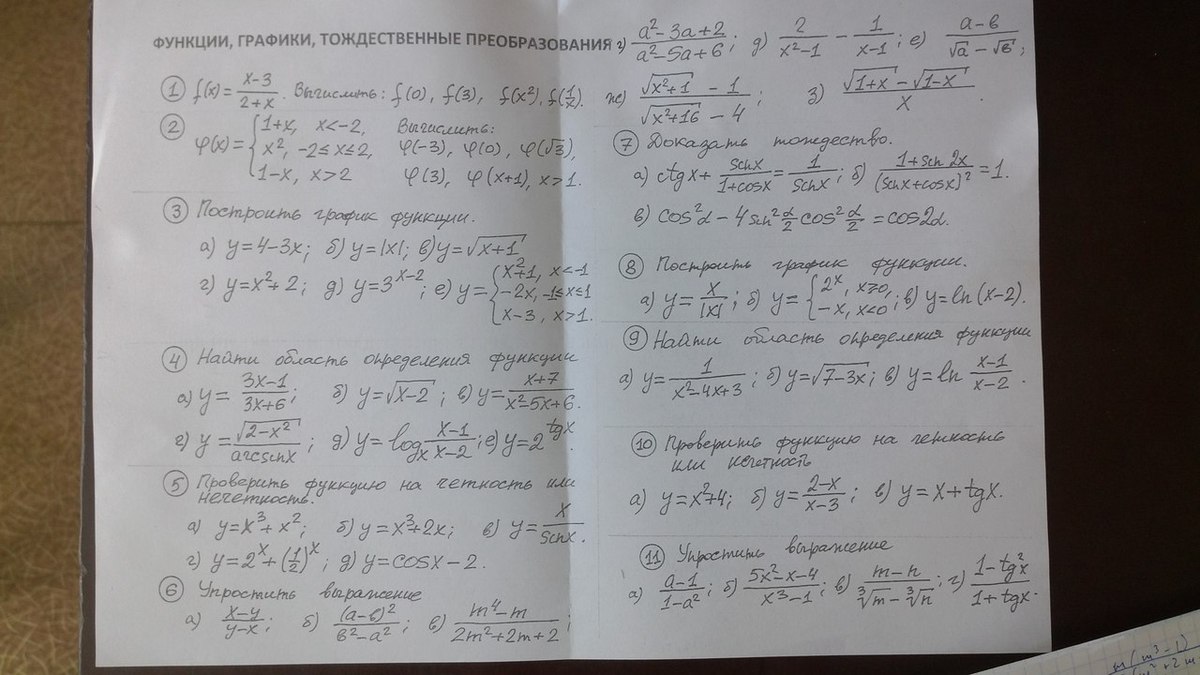 ФУНКЦИИ, ГРАФИКИ, ТОЖДЕСТВЕННЫЕ ПРЕОБРАЗОВАНИЯ
① f(x)=(x-3)/(2+x). Вычислить: f(0), f(3), f(x²), f(1/x).
② φ(x)={1+x, x<-2, Вычислить:
x², -2≤x≤2, φ(-3), φ(0), φ(√3),
1-x, x>2 φ(3), φ(x+1), x>1.
③ Построить график функции.
а) y=4-3x; б) y=|x|; в) y=√(x+1)
г) y=x²+2; д) y=3^(x-2); е) y={x²+1, x<-1
-2x, -1≤x≤1
x-3, x>1.
④ Найти область определения функции
а) y=(3x-1)/(3x+6); б) y=√(x-2); в) y=(x+7)/(x²-5x+6).
г) y=√(2-x²)/arcsinx; д) y=log_x (x-1)/(x-2); е) y=2^(tgx)
⑤ Проверить функцию на четность или
нечетность.
а) y=x³+x²; б) y=x³+2x; в) y=x/sinx.
г) y=2^x+(1/2)^x; д) y=cosx-2.
⑥ Упростить выражение
а) (x-y)/(y-x); б) (a-b)²/(b²-a²); в) (m⁴-m)/(2m²+2m+2);
г) (a²-3a+2)/(a²-5a+6); д) 2/(x²-1) - 1/(x-1); е) (a-b)/(√a-√b);
ж) (√(x²+1) - 1)/(√(x²+16) - 4); з) (√(1+x) - √(1-x))/x.
⑦ Доказать тождество.
а) ctgx+sinx/(1+cosx)=1/sinx; б) (1+sin2x)/(sinx+cosx)²=1.
в) cos²α-4sin²α/2 cos²α/2=cos2α.
⑧ Построить график функции.
а) y=x/|x|; б) y={2^x, x≥0, -x, x<0; в) y=ln(x-2).
⑨ Найти область определения функции
а) y=1/(x²-4x+3); б) y=√(7-3x); в) y=ln (x-1)/(x-2).
⑩ Проверить функцию на четность
или нечетность
а) y=x²+4; б) y=(2-x)/(x-3); в) y=x+tgx.
⑪ Упростить выражение
а) (a-1)/(1-a²); б) (5x²-x-4)/(x³-1); в) (m-n)/(∛m-∛n); г) (1-tg²x)/(1+tgx).